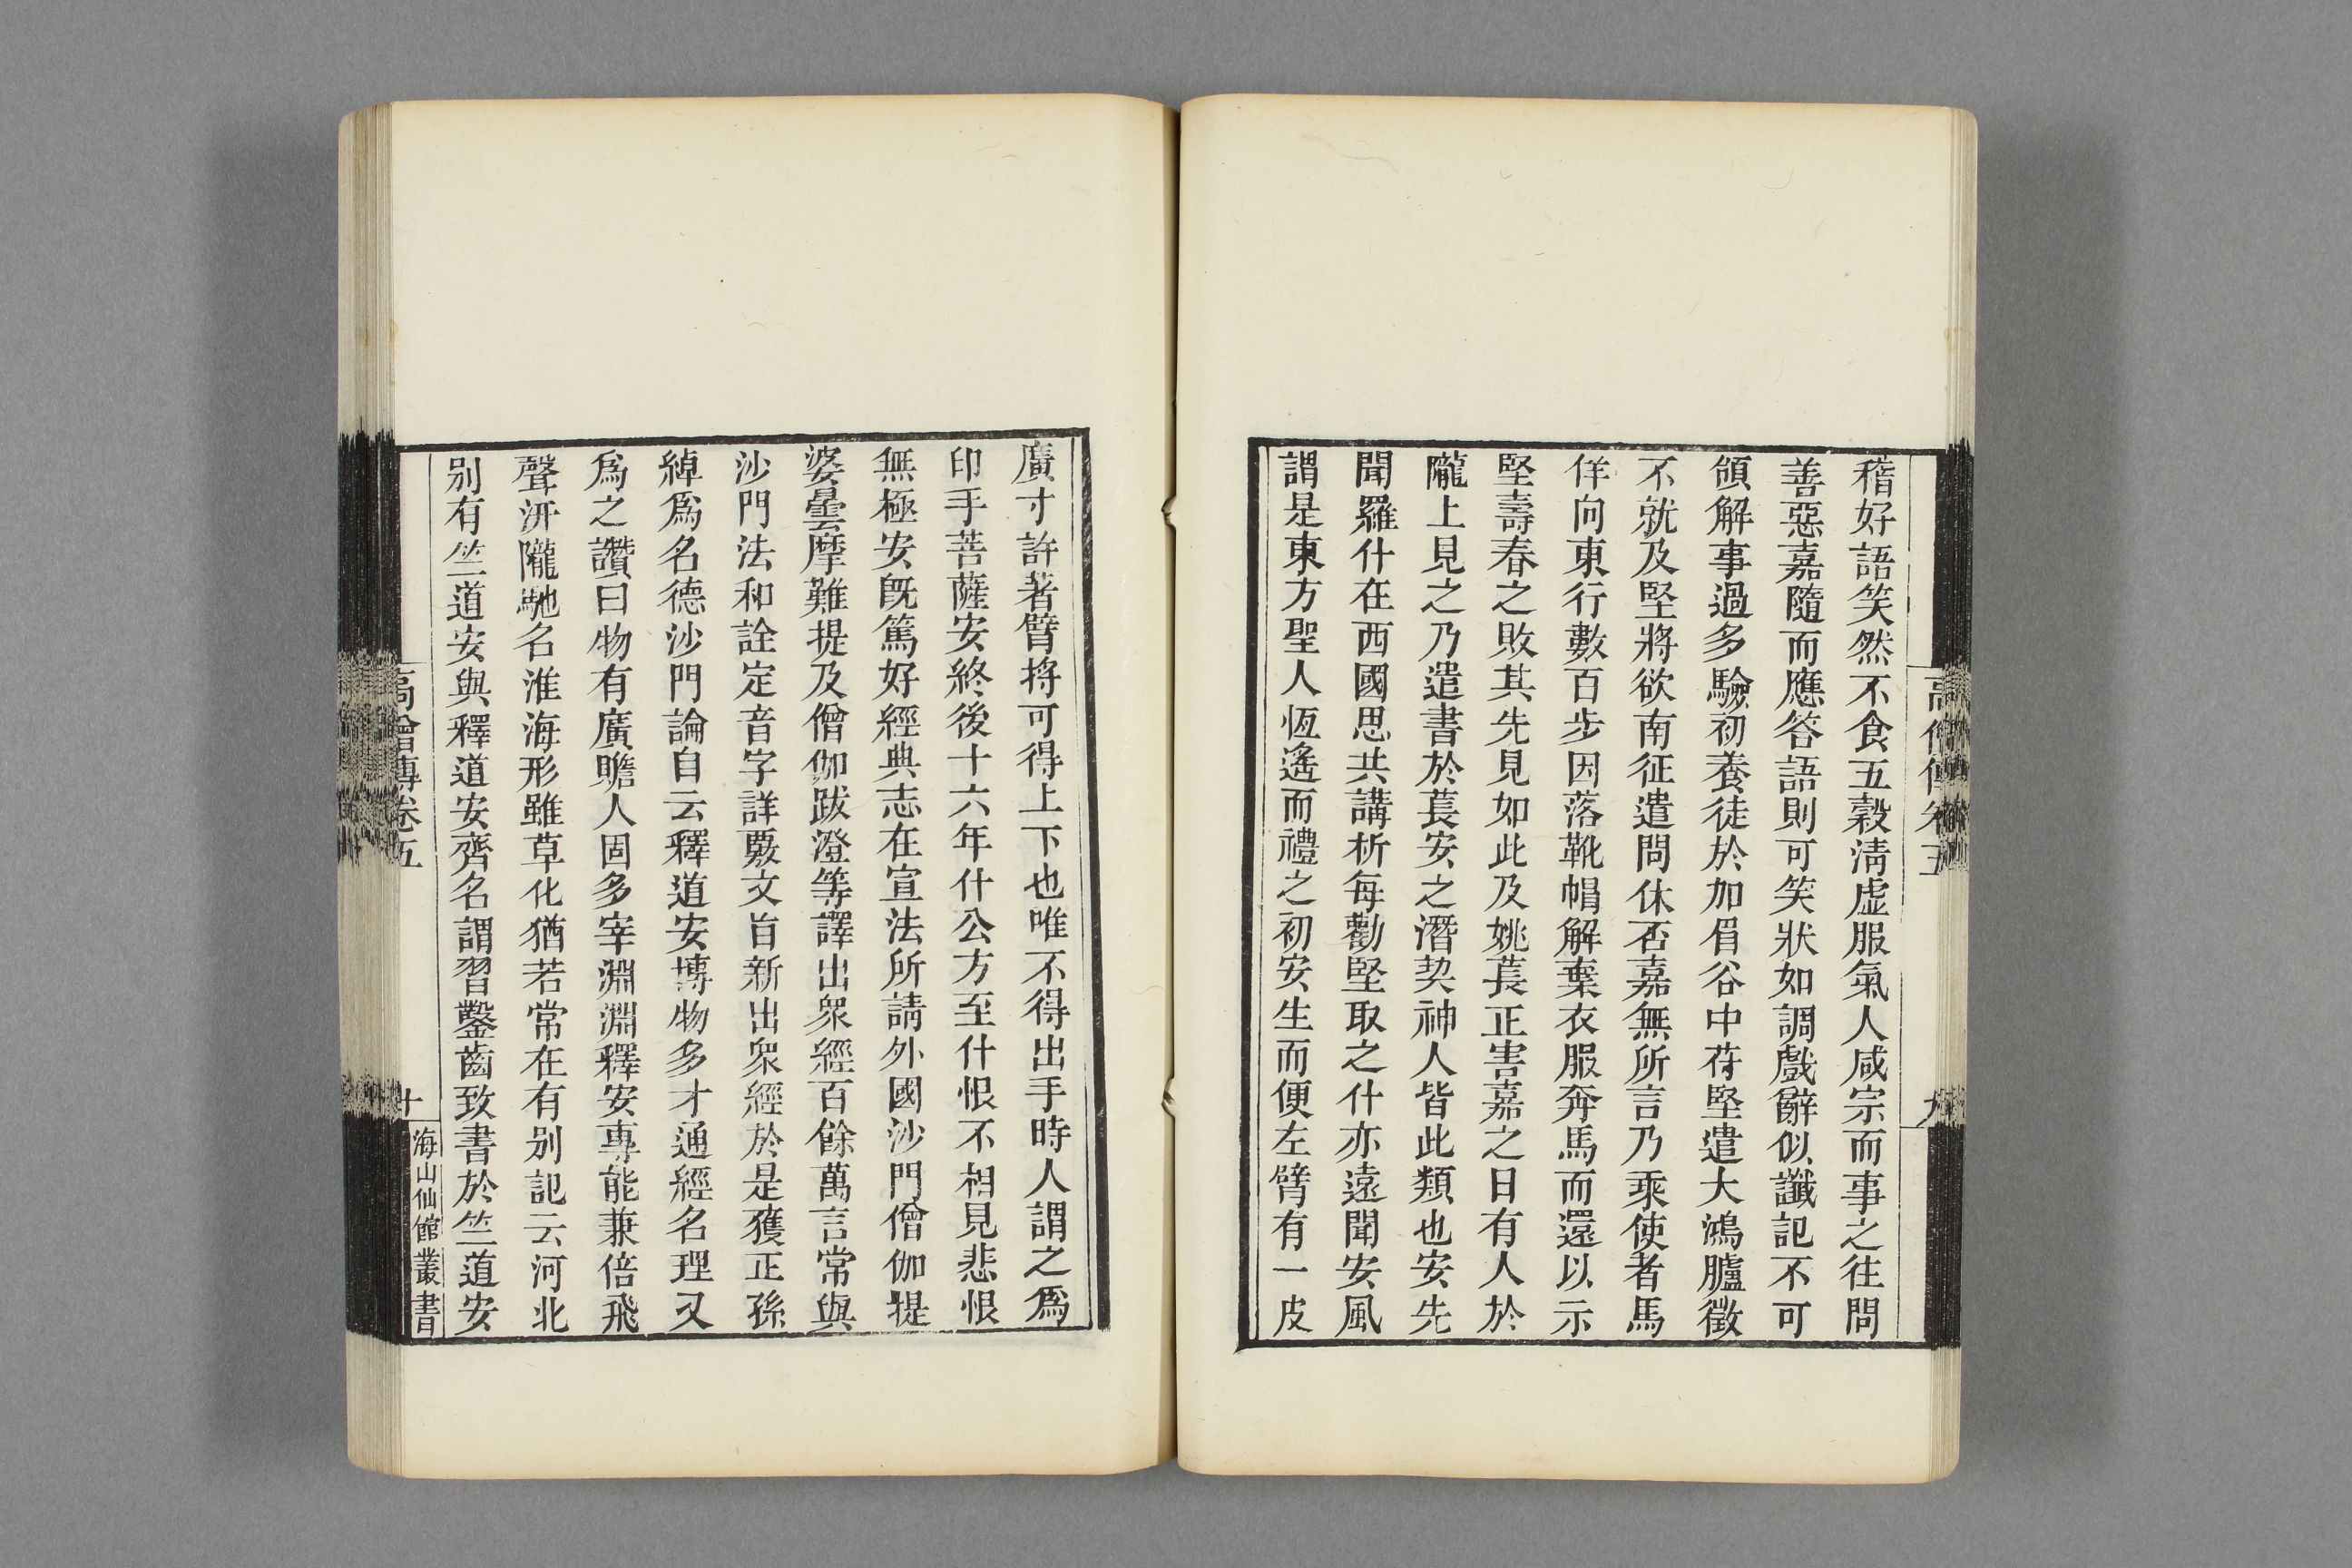 高僧傳卷五
九
稽好語笑然不食五穀淸虛服氣人咸宗而事之往問
善惡嘉隨而應答語則可笑狀如調戲辭似讖記不可
領解事過多驗初養徒於加眉谷中苻堅遣大鴻臚徵
不就及堅將欲南征遣問休否嘉無所言乃乘使者馬
佯向東行數百步因落靴帽解棄衣服奔馬而還以示
堅壽春之敗其先見如此及姚萇正害嘉之日有人於
隴上見之乃遣書於萇安之潛契神人皆此類也安先
聞羅什在西國思共講析每勸堅取之什亦遠聞安風
謂是東方聖人恆遙而禮之初安生而便左臂有一皮
廣寸許著臂捋可得上下也唯不得出手時人謂之爲
印手菩薩安終後十六年什公方至什恨不相見悲恨
無極安既篤好經典志在宣法所請外國沙門僧伽提
婆曇摩難提及僧伽跋澄等譯出眾經百餘萬言常與
沙門法和詮定音字詳覈文旨新出眾經於是獲正孫
綽爲名德沙門論自云釋道安博物多才通經名理又
爲之讚曰物有廣贍人固多宰淵淵釋安專能兼倍飛
聲汧隴馳名淮海形雖草化猶若常在有别記云河北
别有竺道安與釋道安齊名謂習鑿齒致書於竺道安
高僧傳卷五
十
海山仙館叢書